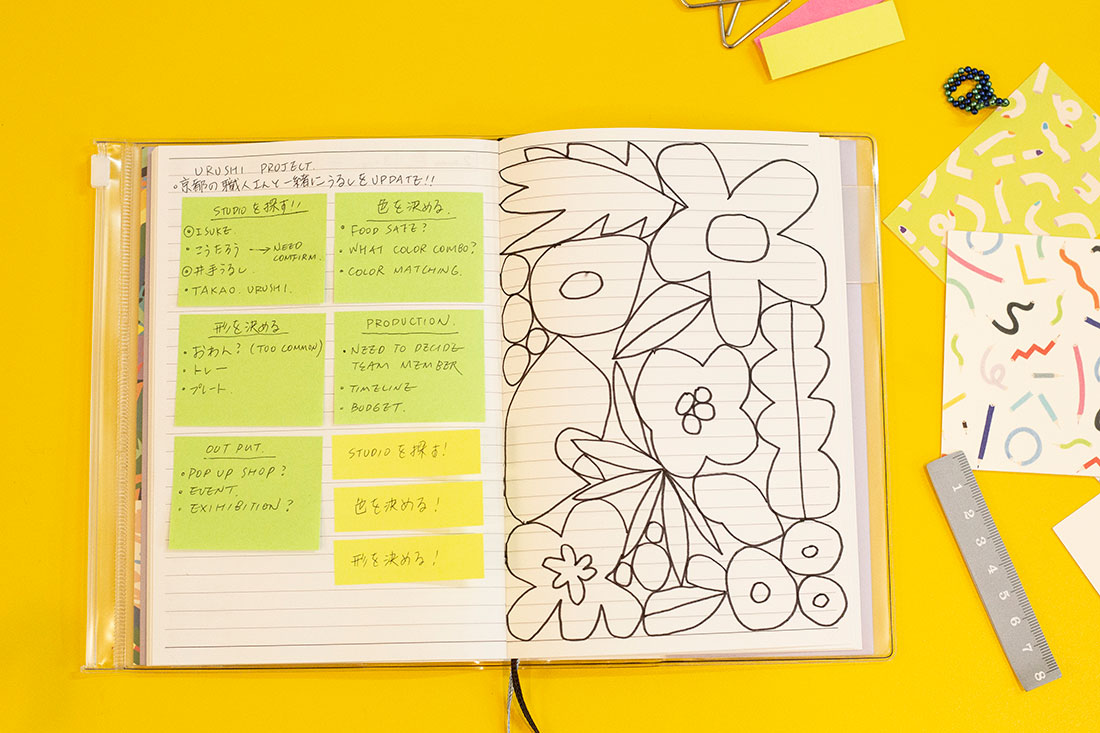 URUSHI PROJECT.
・京都の職人さんと一緒にうるしをUPDATE!!
STUDIOを探す!!
⦿ISUKE
・こうたろう → NEED CONFIRM.
⦿井手うるし.
・TAKAO URUSHI.
色を決める.
・FOOD SAFE?
・WHAT COLOR COMBO?
・COLOR MATCHING.
形を決める
・おわん? (TOO COMMON)
・トレー
・プレート
PRODUCTION.
・NEED TO DECIDE
TEAM MEMBER
・TIMELINE
・BUDGET.
OUT PUT.
・POP UP SHOP?
・EVENT.
・EXIHIBITION?
STUDIOを探す!
色を決める!
形を決める!
1 2 3 4 5 6 7 8